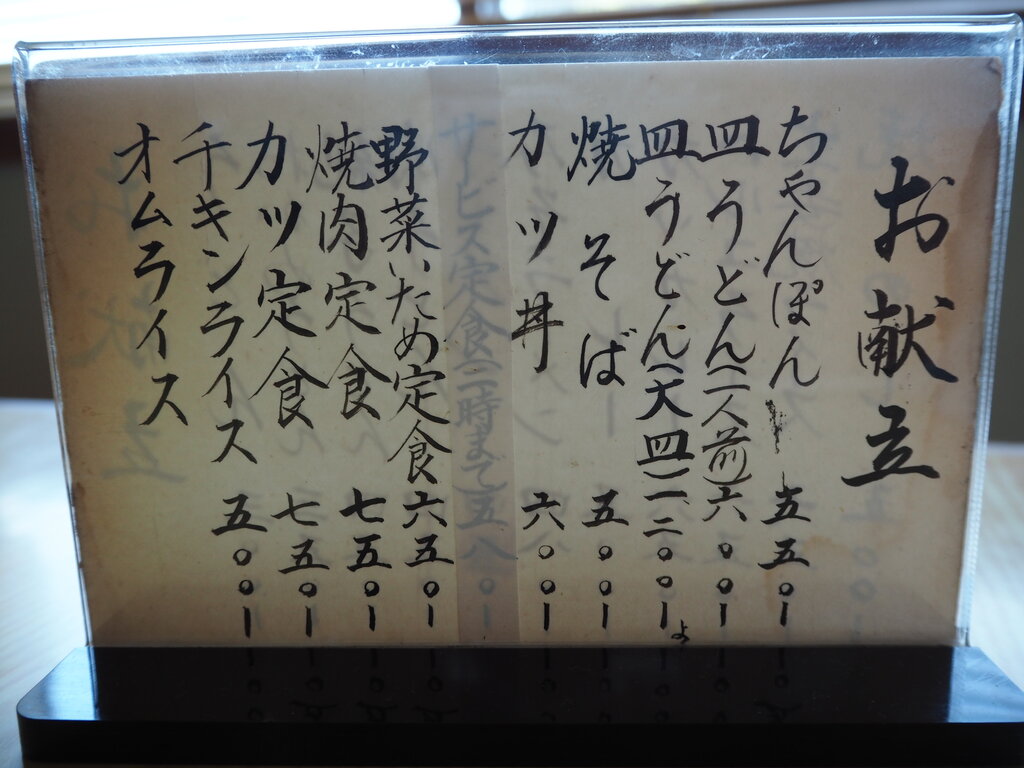 お献立
ちゃんぽん 五五〇ー
皿うどん(一人前)六〇〇ー
皿うどん(大皿)一二〇〇ーよ
焼そば 五〇〇ー
カツ丼 六〇〇ー
サービス定食(二時まで)五八〇ー
野菜いため定食 六五〇ー
焼肉定食 七五〇ー
カツ定食 七五〇ー
チキンライス 五〇〇ー
オムライス